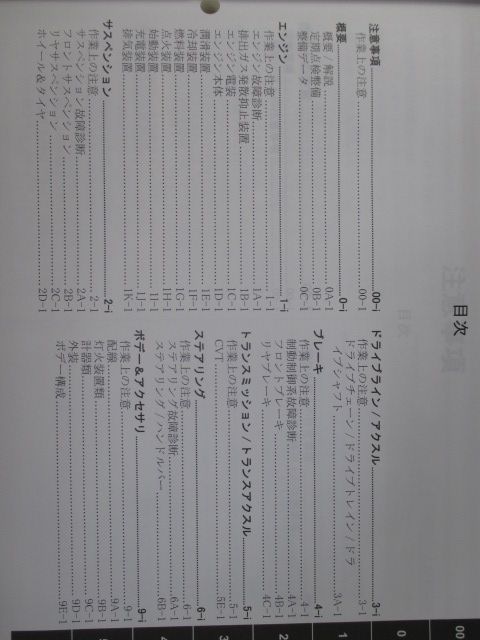 目次
注意事項 00-i
作業上の注意 00-1
概要 0-i
概要 / 解説 0A-1
定期点検整備 0B-1
整備データ 0C-1
エンジン 1-i
作業上の注意 1-1
エンジン故障診断 1A-1
排出ガス発散抑止装置 1B-1
エンジン電装 1C-1
エンジン本体 1D-1
潤滑装置 1E-1
冷却装置 1F-1
燃料装置 1G-1
点火装置 1H-1
始動装置 1I-1
充電装置 1J-1
排気装置 1K-1
サスペンション 2-i
作業上の注意 2-1
サスペンション故障診断 2A-1
フロントサスペンション 2B-1
リヤサスペンション 2C-1
ホイール&タイヤ 2D-1
ドライブライン / アクスル 3-i
作業上の注意 3-1
ドライブチェーン / ドライブトレイン / ドラ
イブシャフト 3A-1
ブレーキ 4-i
作業上の注意 4-1
制動制御系故障診断 4A-1
フロントブレーキ 4B-1
リヤブレーキ 4C-1
トランスミッション / トランスアクスル 5-i
作業上の注意 5-1
CVT 5E-1
ステアリング 6-i
作業上の注意 6-1
ステアリング故障診断 6A-1
ステアリング / ハンドルバー 6B-1
ボデー&アクセサリ 9-i
作業上の注意 9-1
配線 9A-1
灯火装置類 9B-1
計器類 9C-1
外装 9D-1
ボデー構成 9E-1
00
0
1
2
3